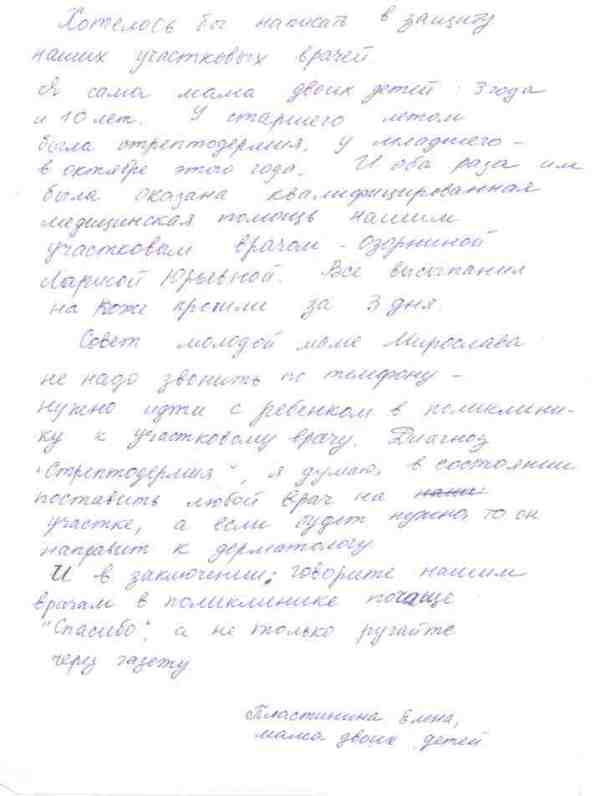 Хотелось бы написать в защиту
наших участковых врачей
Я сама мама двоих детей: 3 года
и 10 лет. У старшего летом
была стрептодермия, у младшего –
в октябре этого года. И оба раза им
была оказана квалифицированная
медицинская помощь нашим
участковым врачом – Озорниной
Ларисой Юрьевной. Все высыпания
на коже прошли за 3 дня.
Совет молодой маме Мирослава:
не надо звонить по телефону –
нужно идти с ребенком в поликлини-
ку к участковому врачу. Диагноз
"Стрептодермия", я думаю, в состоянии
поставить любой врач на
участке, а если будет нужно, то он
направит к дерматологу.
И в заключении: говорите нашим
врачам в поликлинике почаще
"Спасибо", а не только ругайте
через газету
Пластинина Елена,
мама двоих детей